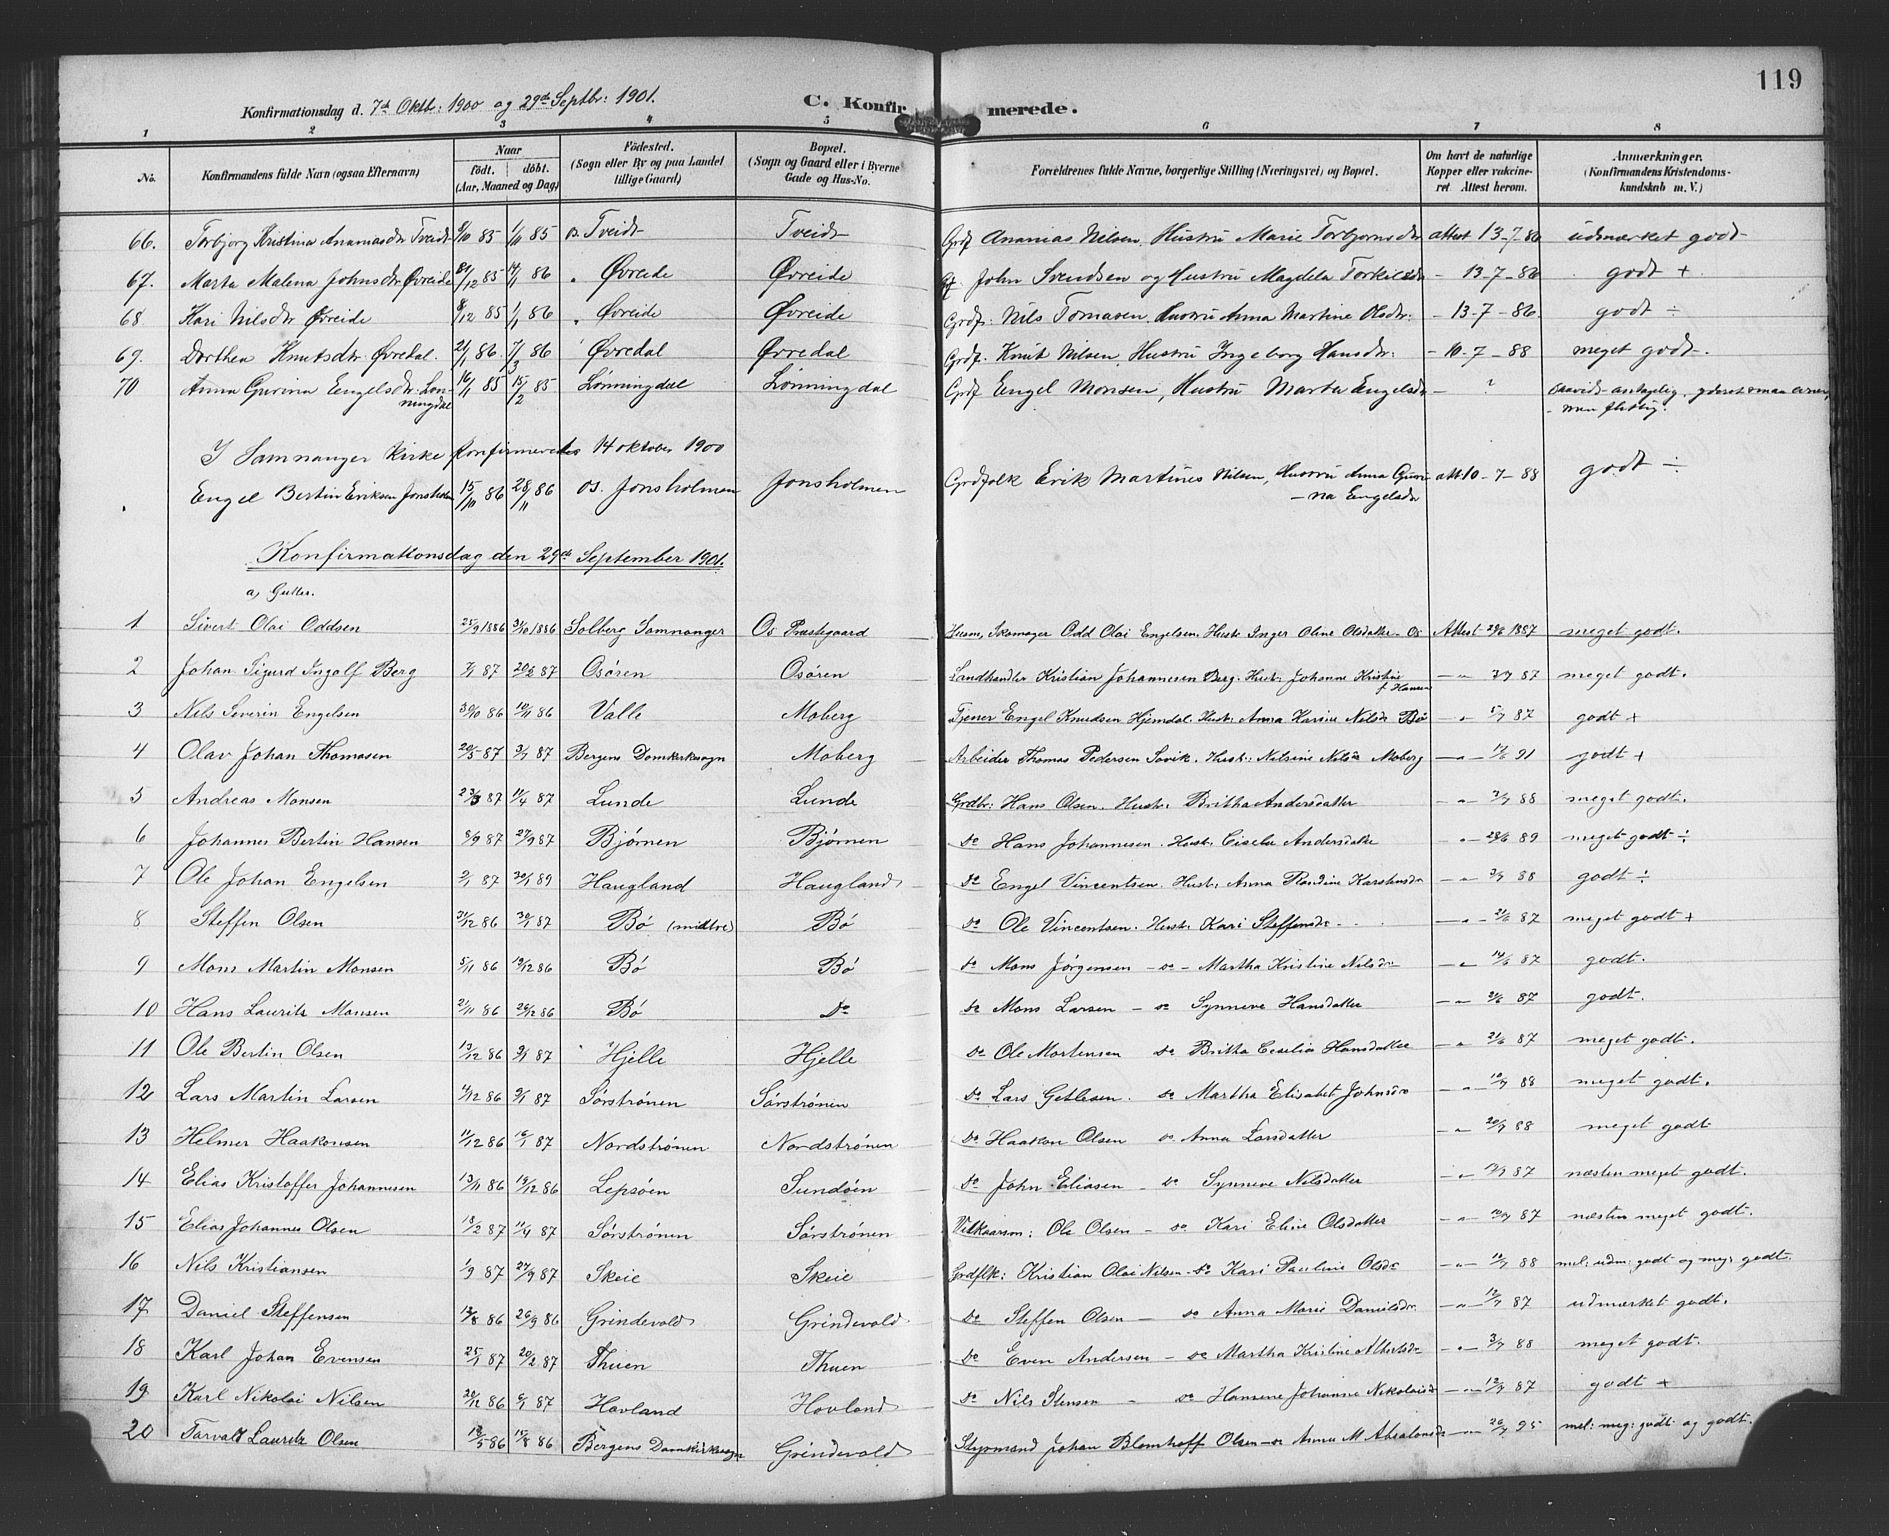 119
Konfirmationsdag d. 7de Oktb: 1900 og 29de Septbr: 1901.
C. Konfirmerede.
1 2 3 4 5 6 7 8
No. Konfirmandens fulde Navn (ogsaa Efternavn) Naar født. døbt. (Aar, Maaned og Dag) Fødested. (Sogn eller By og paa Landet tillige Gaard) Bopæl. (Sogn og Gaard eller i Byerne Gade og Hus-No. Forældrenes fulde Navne, borgerlige Stilling (Næringsvei) og Bopæl. Om havt de naturlige Kopper eller vakcineret. Attest herom. Anmærkninger. (Konfirmandens Kristendomskundskab m. V.)
66. Torbjorg Kristina Ananiasdtr Tveidt 85 1/11 85 Tveidt Tveidt Grdf Ananias Nilsen, Hustru Marie Torbjornsdtr attest 13-7-86 udmærket godt
67. Marta Malena Johnsdtr Øvreide 21/12 85 86 Øvreide Øvreide John Svendsen og Hustru Magdela Torkilsdtr - 13-7-86 godt +
68 Kari Nilsdtr Øvreide 8/12 85 1/1 86 Øvreide Øvreide Grdf: Nils Tomasen, Hustru Anna Martine Olsdtr: - 13-7-86. godt ÷
69. Dorthea Knutsdtr Øvredal. 21/1 86. 7/3 86 Øvredal Øvredal Grdf. Knut Nilsen, Hustru Ingeborg Hansdtr: - 10-7-88 meget godt.
70 Anna Gurina Engelsdtr. Lønningdal 16/1 85 15/2 85 Lønningdal Lønningdal Grdf Engel Monsen, Hustru Marta Engelsdtr - ?
I Samnanger Kirke Konfirmeredes 14 oktober 1900
Engel Bertin Eriksen Jonsholmen 15/10 86 28/11 86 os. Jonsholmen Jonsholmen Grdfolk Erik Martines Nilsen, Hustru Anna Gurina Engelsdtr att. 10-7-88 godt ÷
Konfirmationsdag den 29de September 1901.
a) Gutter.
1 Sivert Olai Oddsen 25/9 1886 3/10 1886 Solberg Samnanger Os Præstegaard Husm, Skomager Odd Olai Engelsen, Hustr. Inger Oline Olsdatter - Os Attest 29/6 1887 meget godt.
2 Johan Sigurd Ingolf Berg 7/1 87 20/2 87 Osøren Osøren Landhandler Kristian Johannesen Berg. Hust: Johanne Kristine f. Hansen 87 meget godt.
3 Nils Severin Engelsen 30/10 86 86 Valle Moberg Tjener Engel Knudsen Hjemdal. Hust: Anna Karine Nilsdr Bø 87 godt +
4 Olav Johan Thomasen 20/5 87 87 Bergens Domkirkesogn Moberg Arbeider Thomas Pedersen Søvik. Hust: Nilsine Nilsdr Moberg 91 godt +
5 Andreas Monsen 23/3 87 11/4 87 Lunde Lunde Grdbr: Hans Olsen. Hust: Britha Andersdatter 88 meget godt.
6 Johannes Bertin Hansen 8/9 87 27/9 87 Bjørnen Bjørnen do Hans Johannesen. Hust: Andersdatter 28/6 89 meget godt ÷
7 Ole Johan Engelsen 2/1 87 30/1 89 Haugland Haugland do Engel Vincentsen. Hust: Anna Randine Karstensdr 88 godt ÷
8 Steffen Olsen 31/12 86 30/1 87 Bø (midtre) Bø do Ole Vincentsen. Hust: Kari Steffensdr 21/6 87 meget godt +
9 Mons Martin Monsen 5/11 86 19/12 86 Bø Bø do Mons Jørgensen - do - Martha Kristine Nilsdr 14/6 87 godt.
10 Hans Lauritz Monsen 21/11 86 26/12 86 Bø do do Mons Larsen - do Synneve Hansdatter 21/6 87 godt.
11 Ole Bertin Olsen 13/12 86 9/1 87 Hjelle Hjelle do Ole Mortensen do Britha Cecilia Hansdatter 21/6 87 meget godt.
12 Lars Martin Larsen 4/12 86 9/1 87 Sørstrønen Sørstrønen do Lars Getlesen. do Martha Elisabet Johnsdr 88 meget godt.
13 Helmer Haakonsen 11/12 86 16/1 87 Nordstrønen Nordstrønen do Haakon Olsen do Anna Larsdatter 88 meget godt
14 Elias Kristoffer Johannesen 13/11 86 19/12 86 Lepsøen Sundøen do John Eliasen - do Synneve Nilsdatter 87 næsten meget godt.
15 Elias Johannes Olsen 18/2 87 11/4 87 Sørstrønen Sørstrønen Vilkaarsm: Ole Olsen - do Kari Eline Olsdatter 87 næsten meget godt.
16 Nils Kristiansen 1/9 87 27/9 87 Skeie Skeie Grdflk: Kristian Olai Nilsen - do Kari Pauline Olsdr 88 mel: udm: godt og meg: godt.
17 Daniel Steffensen 86 26/9 86 Grindevold Grindevold do Steffen Olsen - do Anna Marie Danielsdr 87 udmærket godt.
18 Karl Johan Evensen 25/1 87 20/2 87 Thuen Thuen do Even Andersen - do Martha Kristine Albertsdr 88 meget godt.
19 Karl Nikolai Nilsen 20/12 86 87 Hovland Hovland do Nils Stensen - do Hansine Johanne Nikolaisdr 87 godt +
20 Torvald Lauritz Olsen 86 86 Bergens Domkirkesogn Grindevold Styrmand Johan Blomhoff Olsen - do Anna M Absalonsdr 95 mel: meg: godt og godt.